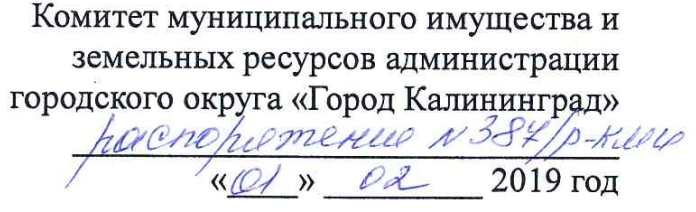 Комитет муниципального имущества и
земельных ресурсов администрации
городского округа «Город Калининград»
распоряжение № 387/р-КМИ
«01» 02 2019 год